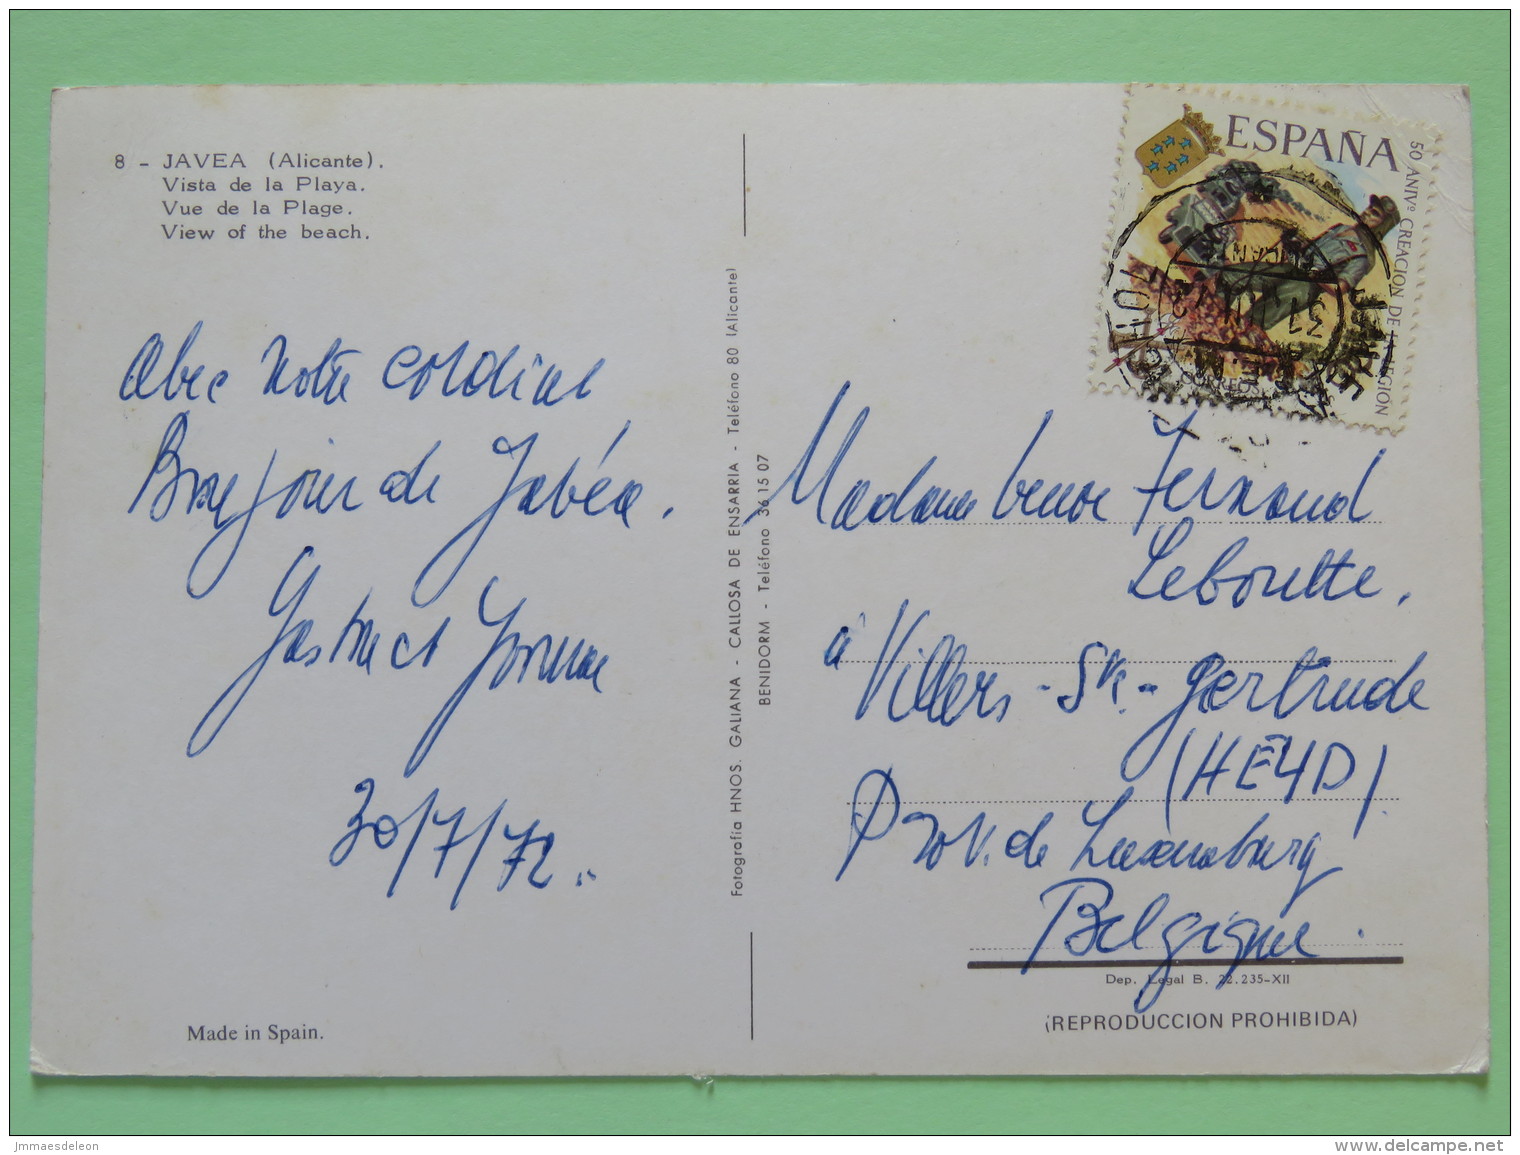 8 - JAVEA (Alicante).
Vista de la Playa.
Vue de la Plage.
View of the beach.
ESPAÑA
50 ANIVº CREACION DE LA LEGION
CORREOS
Abec Notre cordial
Bonjour de Jabéa.
Gaston et Yvonne
30/7/72..
Made in Spain.
Fotografía HNOS. GALIANA - CALLOSA DE ENSARRIA - Teléfono 80 (Alicante)
BENIDORM - Teléfono 36 15 07
Madame Veuve Fernand
Leboutte.
à Villers - Ste. - Gertrude
(HEYD)
Prov. de Luxembourg
Belgique.
Dep. Legal B. 22.235-XII
(REPRODUCCION PROHIBIDA)
jmmaesdeleon
www.delcampe.net